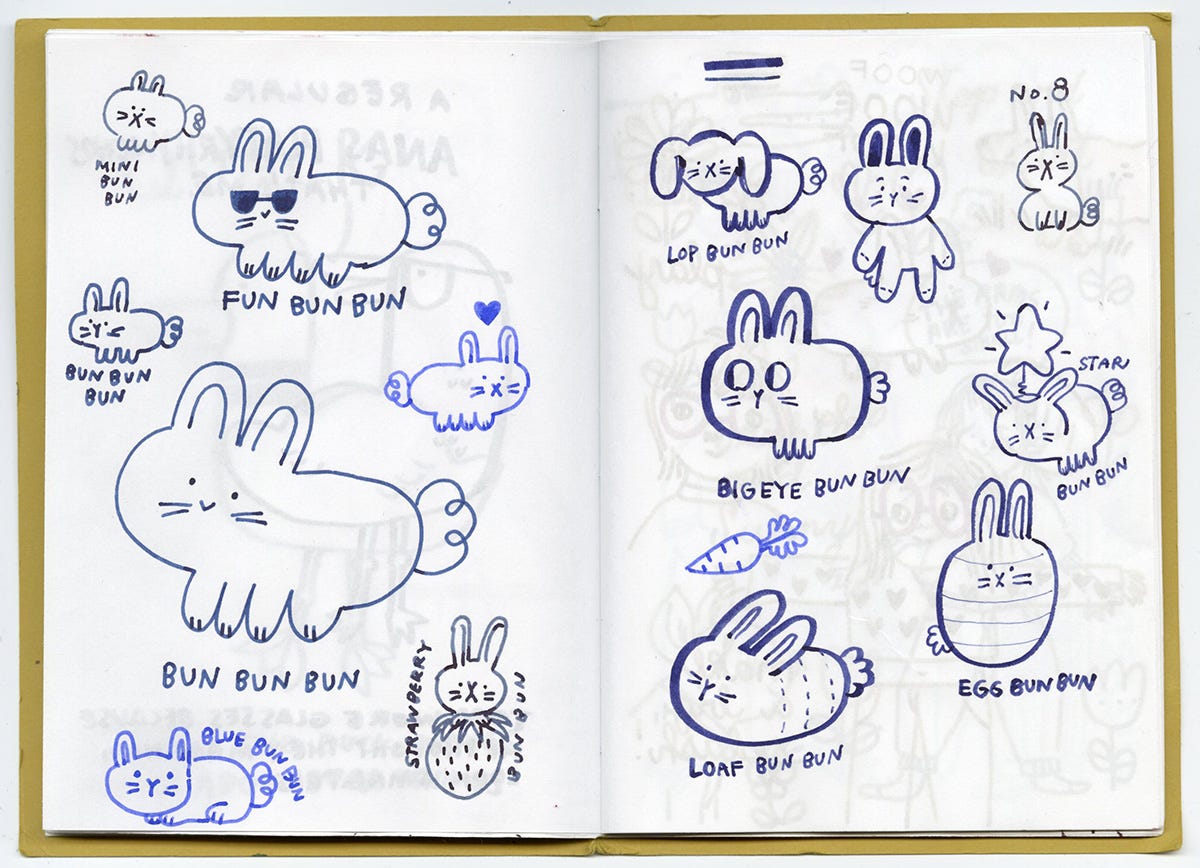 MINI
BUN
BUN
FUN BUN BUN
BUN BUN
BUN
BUN BUN BUN
STRAWBERRY
BUN BUN
BLUE BUN
BUN
No. 8
LOP BUN BUN
STAR
BUN BUN
BIG EYE BUN BUN
EGG BUN BUN
LOAF BUN BUN